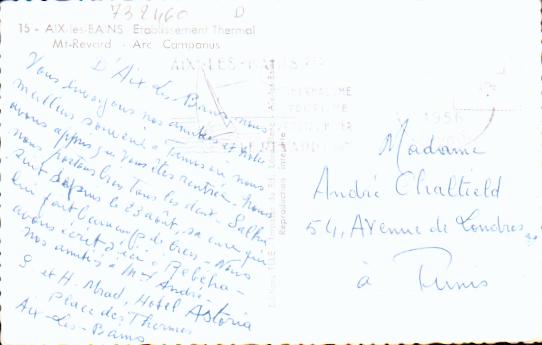 732460 D
15 - AIX-les-BAINS Etablissement Thermal
Mt-Revard - Arc Campanus
AIX-LES-BAINS
THERMALISME
TOURISME
1956
D'Aix-les-Bains, nous
Vous envoyons nos amitiés et notre
meilleur souvenir à Tunis où nous
avons appris que vous êtes rentrée. Nous
nous portons bien tous les deux. Selha
suit depuis le 23 août, sa cure qui
lui fait beaucoup de bien. Nous
avons écrit d'ici à
nos amitiés à Mr André.
S. et H. Abad, Hotel Astoria
Place des Thermes
Aix-les-Bains
Reproduction interdite
Madame
André Chaltield
54, Avenue de Londres
à Tunis